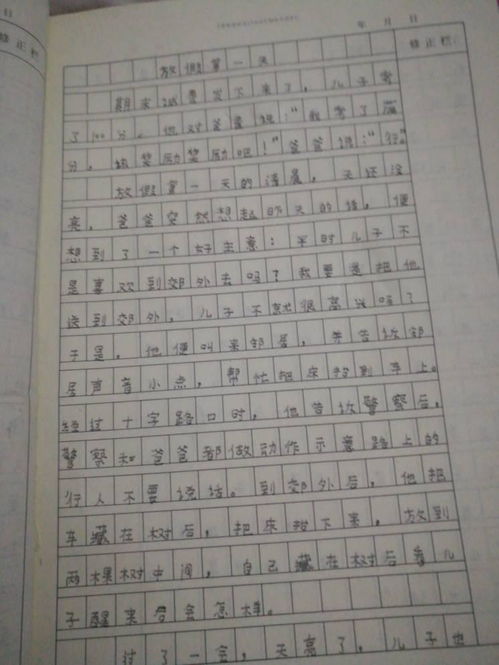 日
年 月 日
修正栏
修正栏:
放假第一天
期末试卷发下来了,儿子考
了100分。他对爸爸说:“我考了满
分,给奖励奖励吧!”爸爸说:“行。”
放假第一天的清晨,天还没
亮,爸爸突然想起昨天的话,便
想到了一个好主意:平时儿子不
是喜欢到郊外去吗?我要是把他
送到郊外,儿子不就很高兴吗?
于是,他便叫来邻居,并告诉邻
居声音小点,帮忙把床抬到车上。
经过十字路口时,他告诉警察后,
警察和爸爸都做动作示意路上的
行人不要说话。到郊外后,他把
车藏在树后,把床抬下来,放到
两棵树中间,自己藏在树后看儿
子醒来后会怎样。
过了一会,天亮了,儿子也